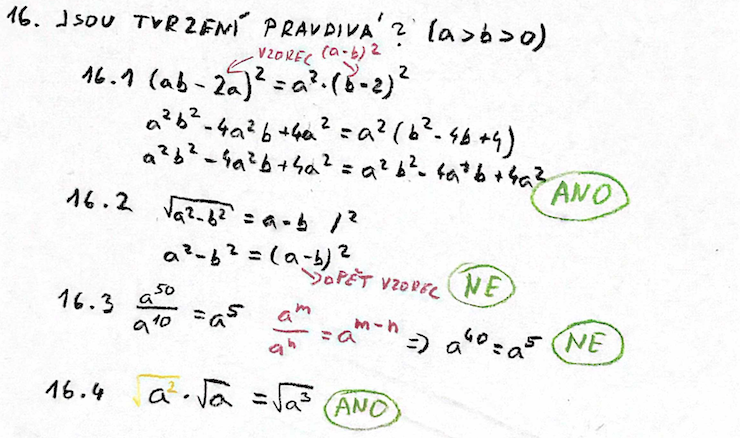 16. JSOU TVRZENÍ PRAVDIVÁ? (a>b>0)
VZOREC (a-b)²
16.1 (ab - 2a)² = a²·(b-2)²
a²b² - 4a²b + 4a² = a²(b² - 4b + 4)
a²b² - 4a²b + 4a² = a²b² - 4a²b + 4a² ANO
16.2 √a²-b² = a-b /²
a² - b² = (a-b)²
OPĚT VZOREC NE
16.3 a⁵⁰/a¹⁰ = a⁵ aᵐ/aⁿ = aᵐ⁻ⁿ => a⁴⁰ = a⁵ NE
16.4 √a² · √a = √a³ ANO